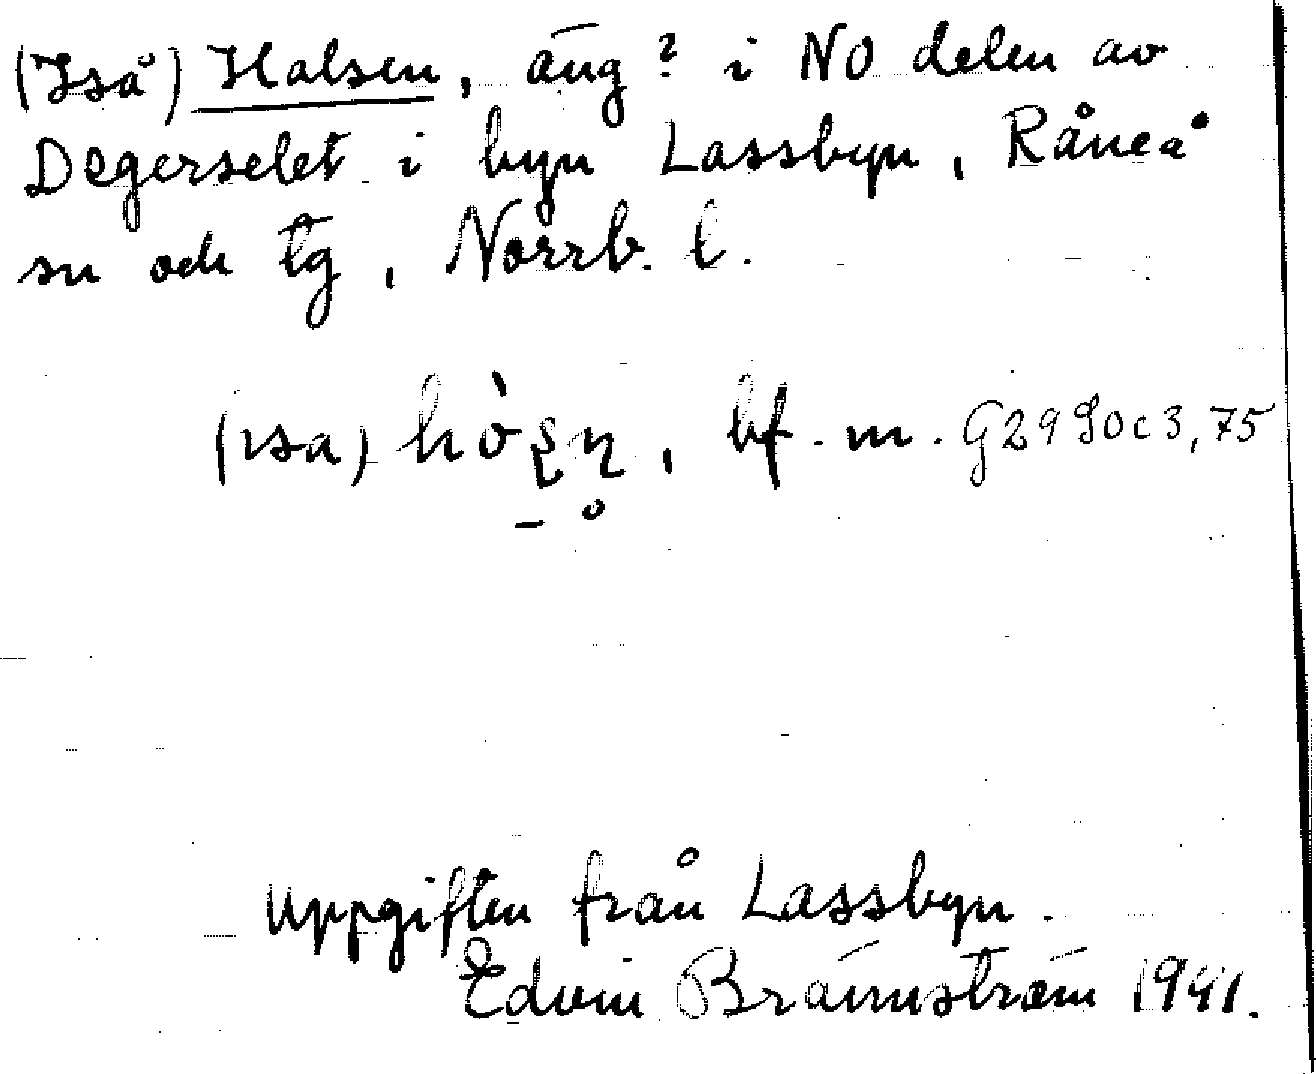 (Iså) Halsen, äng? i NO delen av
Degerselet i byn Lassbyn, Råneå
sn och tg, Norrb. l.
(ısa) , bf. m. G2990c3,75
Uppgiften från Lassbyn.
Edvin Brännström 1941.